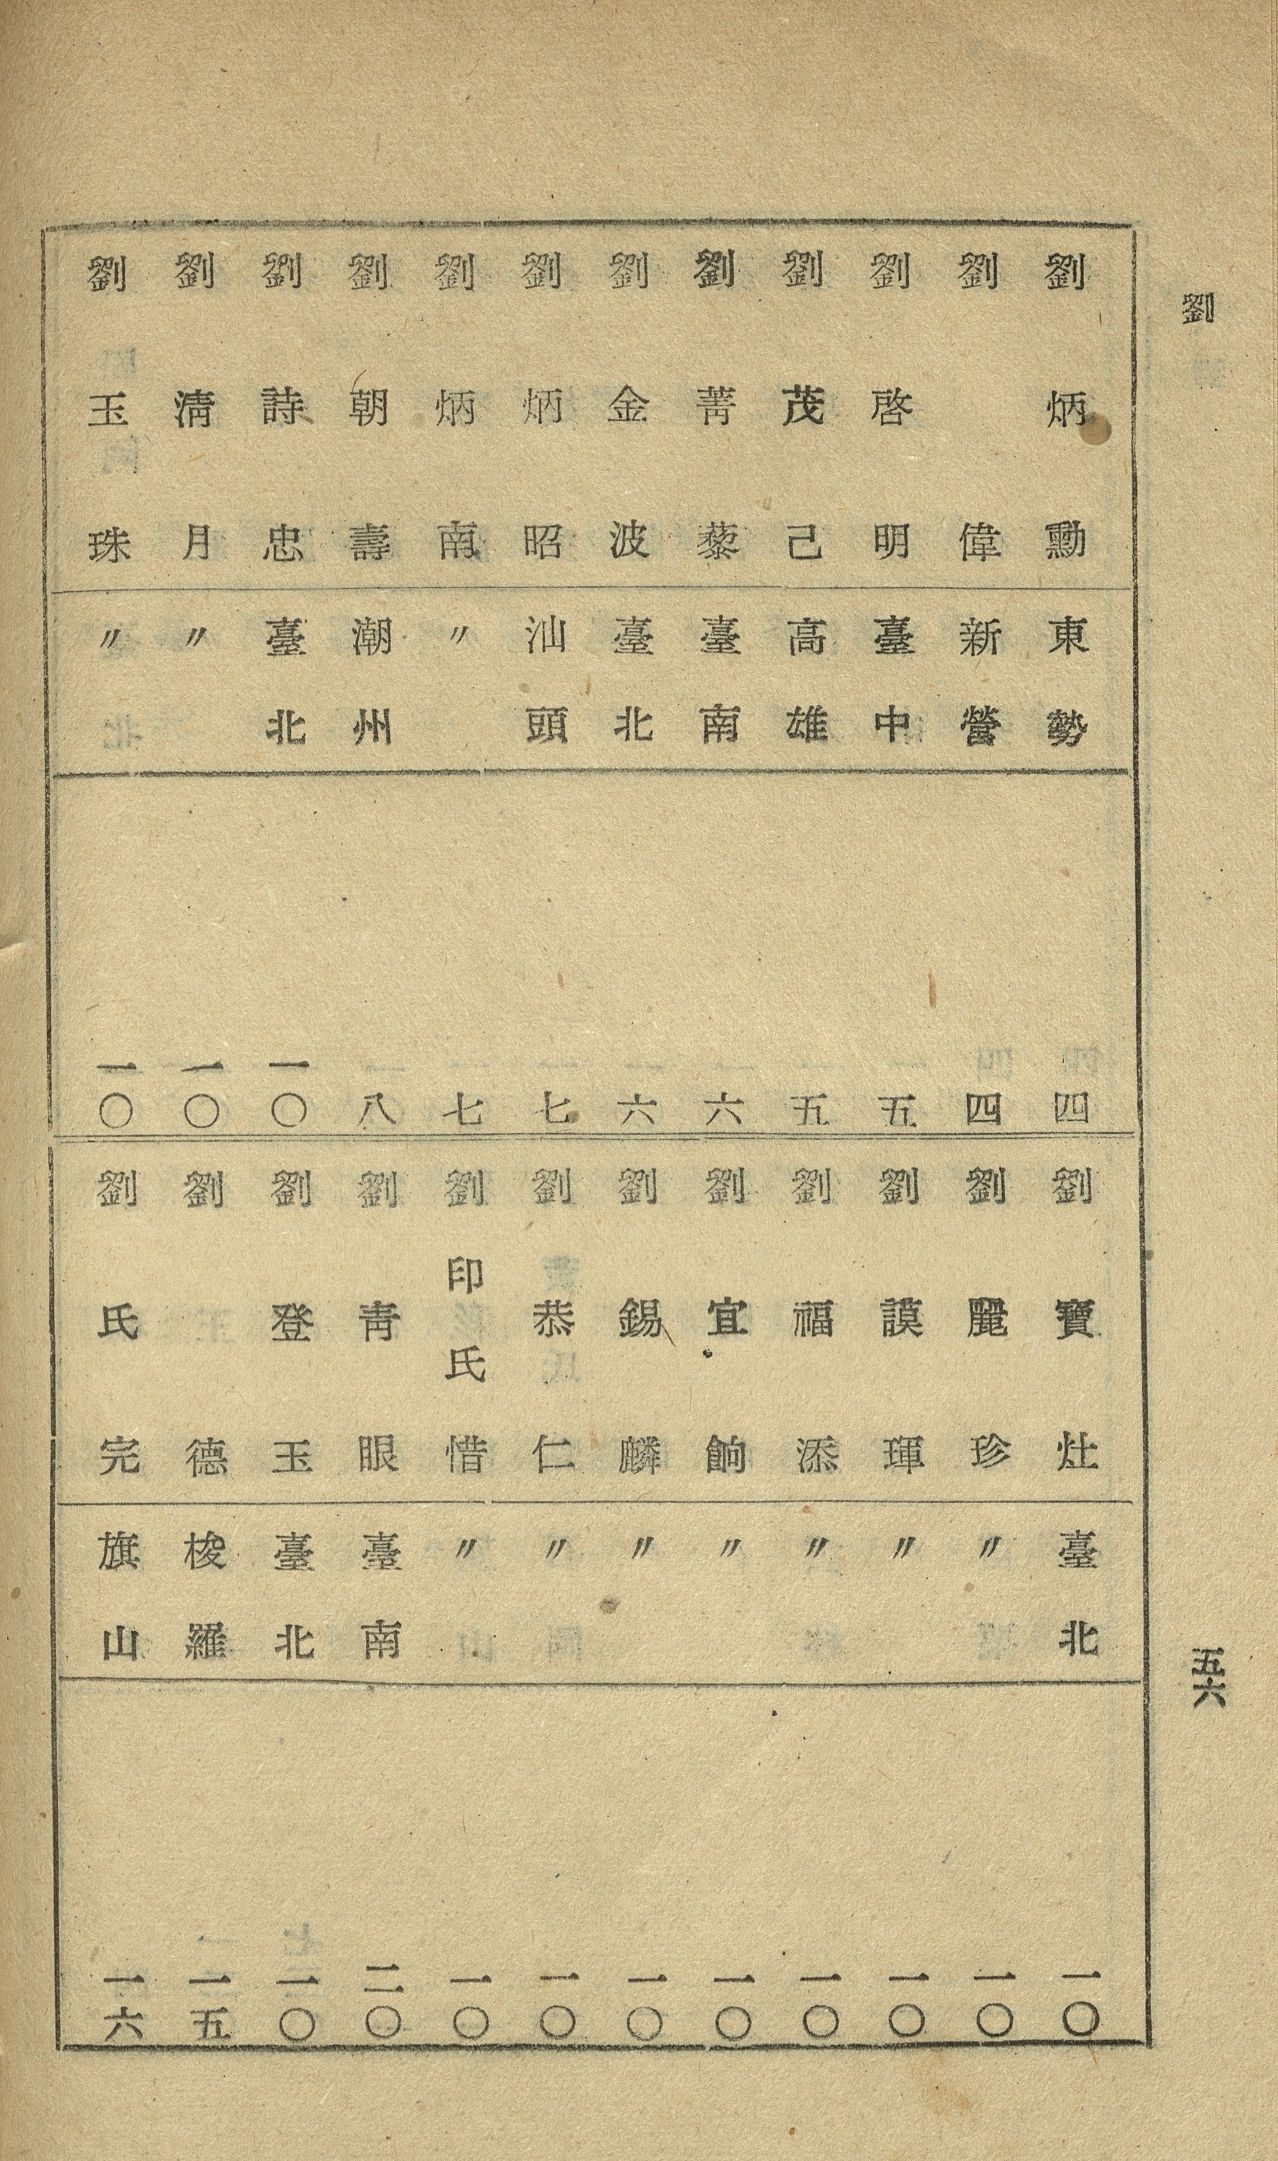 劉
五六
劉炳勳 東勢 四
劉偉 新營 四
劉啓明 臺中 五
劉茂己 高雄 五
劉菁藜 臺南 六
劉金波 臺北 六
劉炳昭 汕頭 七
劉炳南 〃 七
劉朝壽 潮州 八
劉詩忠 臺北 一〇
劉清月 〃 一〇
劉玉珠 〃 一〇
劉寶灶 臺北 一〇
劉麗珍 〃 一〇
劉謨琿 〃 一〇
劉福添 〃 一〇
劉宜餉 〃 一〇
劉錫麟 〃 一〇
劉恭仁 〃 一〇
劉印氏惜 〃 一〇
劉青眼 臺南 二〇
劉登玉 臺北 一〇
劉德 梭羅 一五
劉氏完 旗山 一六